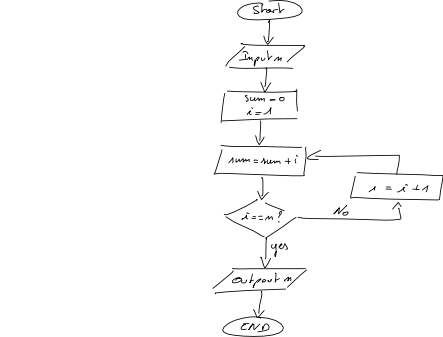 Start
Input n
sum = 0
i = 1
sum = sum + i
i = i + 1
i == n?
No
yes
Outpout n
END